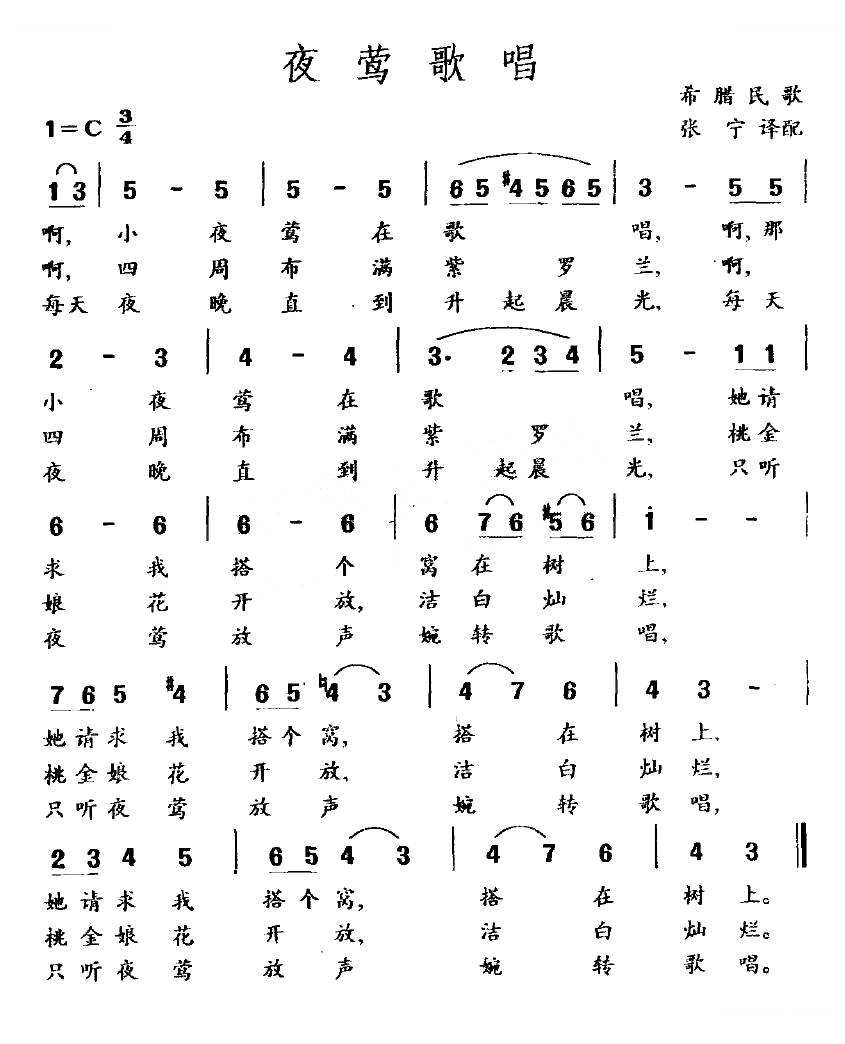 夜莺歌唱
希腊民歌
1=C 3/4
张宁译配
1 3 | 5 - 5 | 5 - 5 | 6 5 #4 5 6 5 | 3 - 5 5 |
啊, 小 夜 莺 在 歌 唱, 啊, 那
啊, 四 周 布 满 紫 罗 兰, 啊,
每天 夜 晚 直 到 升 起 晨 光, 每 天
2 - 3 | 4 - 4 | 3. 2 3 4 | 5 - 1 1 |
小 夜 莺 在 歌 唱, 她 请
四 周 布 满 紫 罗 兰, 桃 金
夜 晚 直 到 升 起 晨 光, 只 听
6 - 6 | 6 - 6 | 6 7 6 #5 6 | i - - |
求 我 搭 个 窝 在 树 上,
娘 花 开 放, 洁 白 灿 烂,
夜 莺 放 声 婉 转 歌 唱,
7 6 5 #4 | 6 5 ♮4 3 | 4 7 6 | 4 3 - |
她 请 求 我 搭 个 窝, 搭 在 树 上,
桃 金 娘 花 开 放, 洁 白 灿 烂,
只 听 夜 莺 放 声 婉 转 歌 唱,
2 3 4 5 | 6 5 4 3 | 4 7 6 | 4 3 ‖
她 请 求 我 搭 个 窝, 搭 在 树 上。
桃 金 娘 花 开 放, 洁 白 灿 烂。
只 听 夜 莺 放 声 婉 转 歌 唱。